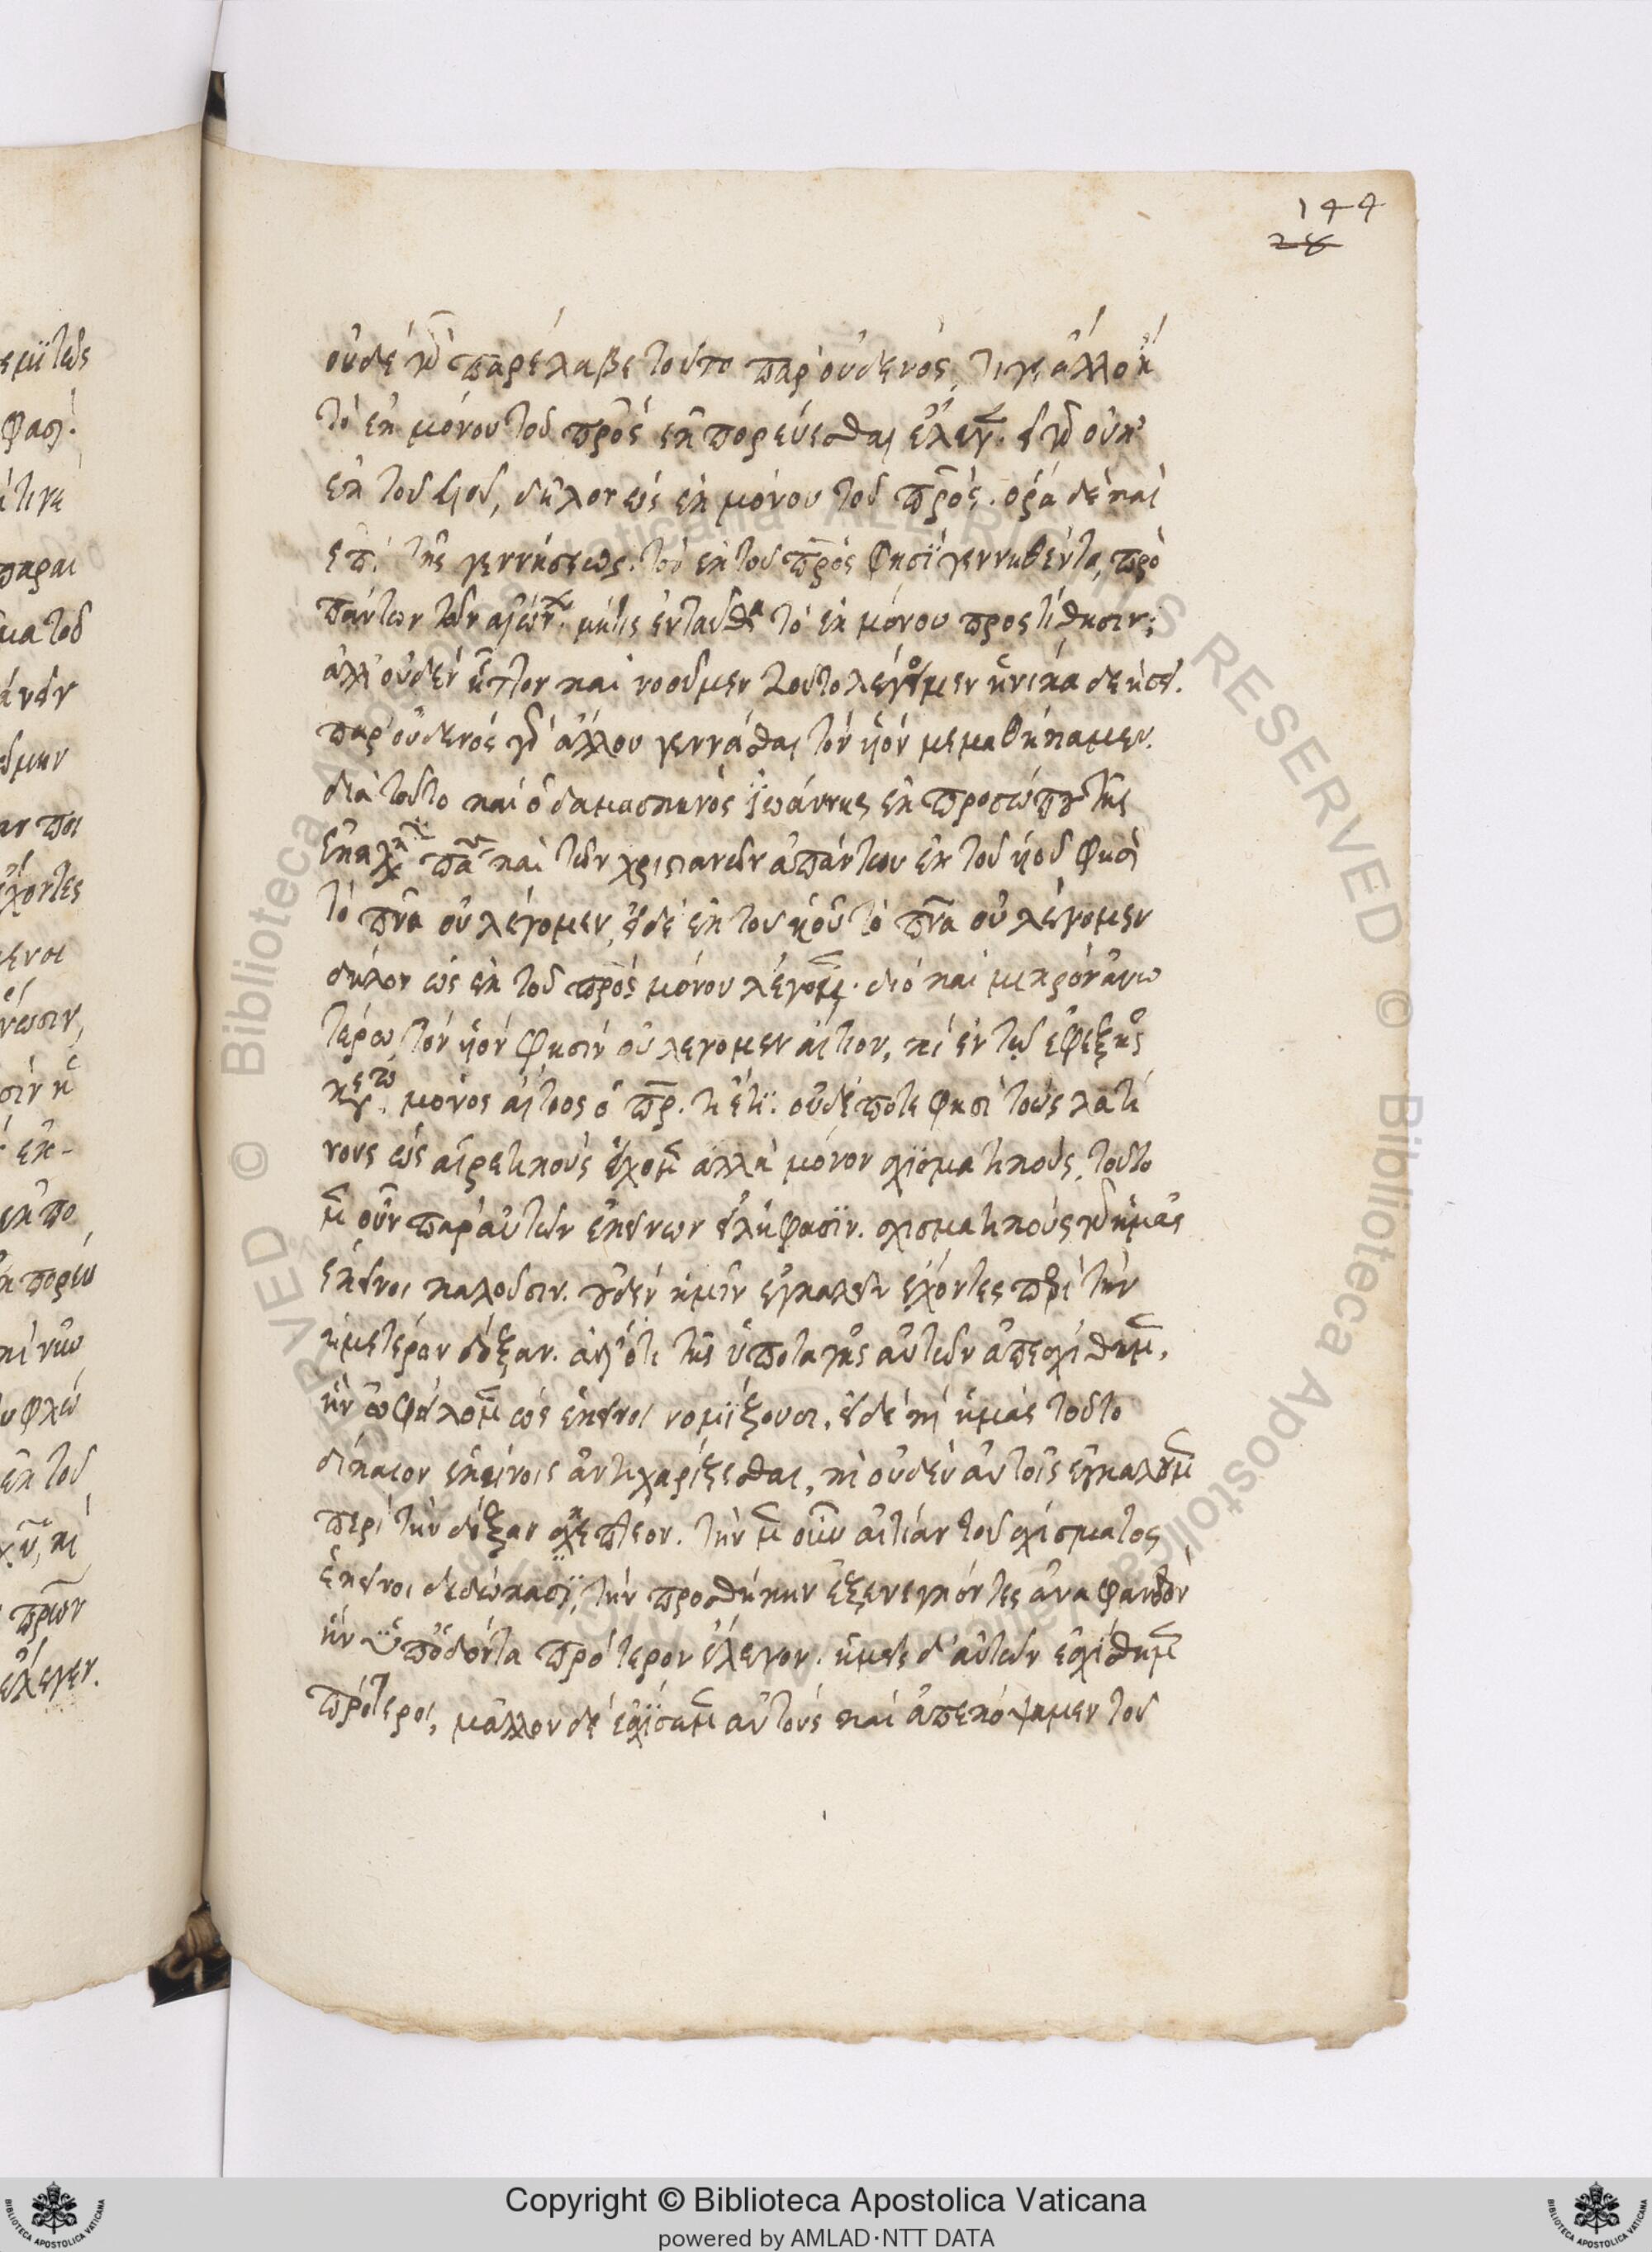 144
28
οὐδὲ γὰρ παρέλαβε τοῦτο παρ' οὐδενὸς, τί γε ἄλλο ἢ
τὸ ἐκ μόνου τοῦ πρς ἐκπορεύεσθαι ἔλεγεν. εἰ γὰρ οὐκ
ἐκ τοῦ υἱοῦ, δῆλον ὡς ἐκ μόνου τοῦ πρς. ὅρα δὲ καὶ
ἐπὶ τῆς γεννήσεως. τὸν ἐκ τοῦ πρς φησὶ γεννηθέντα, πρὸ
πάντων τῶν αἰώνων. μήτις ἐνταῦθα τὸ ἐκ μόνου προστίθησιν;
ἀλλ' οὐδὲν ἧττον καὶ νοοῦμεν τοῦτο λέγομεν ἡνίκα δεήσει.
παρ' οὐδενὸς γὰρ ἄλλου γεννᾶσθαι τὸν υἱὸν μεμαθήκαμεν.
διὰ τοῦτο καὶ ὁ δαμασκηνὸς ἰωάννης ἐκ προσώπου τῆς
καὶ τῶν χριστιανῶν ἁπάντων ἐκ τοῦ υἱοῦ φησὶ
τὸ πνα οὐ λέγομεν, εἰ δὲ ἐκ τοῦ υἱοῦ τὸ πνα οὐ λέγομεν
δῆλον ὡς ἐκ τοῦ πρς μόνου λέγομεν. διὸ καὶ μικρὸν ἀνω
τέρω τὸν υἱὸν φησὶν οὐ λέγομεν αἴτιον, καὶ ἐν τῷ ἐφεξῆς
μόνος αἴτιος ὁ πηρ. τί ἔτι. οὐδέποτε φησὶ τοὺς λατί
νους ὡς αἱρετικοὺς ἔχομεν ἀλλὰ μόνον σχισματικούς, τοῦτο
μὲν οὖν παρ' αὐτῶν ἐκείνων εἰλήφασιν. σχισματικοὺς γὰρ ἡμᾶς
ἐκεῖνοι καλοῦσιν. οὐδὲν ἡμῖν ἐγκαλεῖν ἔχοντες περὶ τὴν
ἡμετέραν δόξαν. ἀλλ' ὅτι τῆς ὑποταγῆς αὐτῶν ἀπεσχίσθημεν,
ἣν ὀφείλομεν ὡς ἐκεῖνοι νομίζουσι. εἰ δὲ καὶ ἡμᾶς τοῦτο
δίκαιον ἐκείνοις ἀντιχαρίζεσθαι, καὶ οὐδὲν αὐτοῖς ἐγκαλοῦμεν
περὶ τὴν δόξαν σκεπτέον. τὴν μὲν οὖν αἰτίαν τοῦ σχίσματος
ἐκεῖνοι δεδώκασι, τὴν προσθήκην ἐξενεγκόντες ἀναφανδὸν
ἣν ὑπ' ὀδόντα πρότερον ἔλεγον. ἡμεῖς δ' αὐτῶν ἐσχίσθημεν
πρότεροι, μᾶλλον δὲ ἐσχίσαμεν αὐτοὺς καὶ ἀπεκόψαμεν τοῦ
Copyright © Biblioteca Apostolica Vaticana
powered by AMLAD·NTT DATA